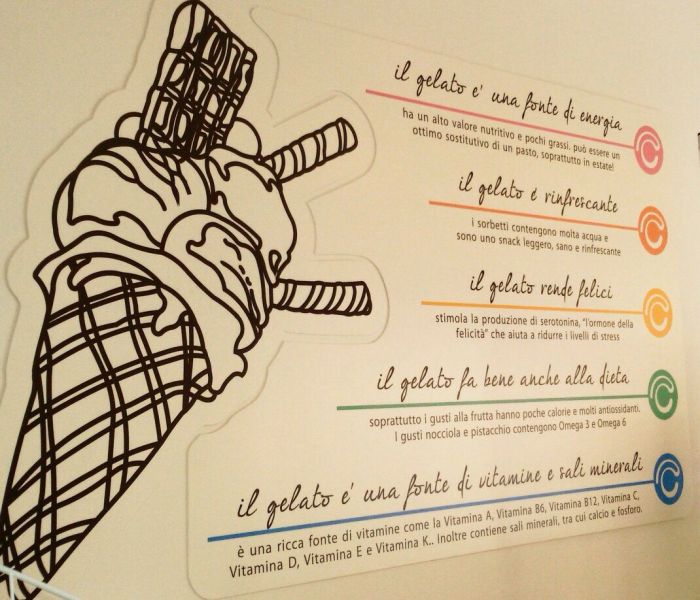 il gelato e' una fonte di energia
ha un alto valore nutritivo e pochi grassi. può essere un
ottimo sostitutivo di un pasto, soprattutto in estate!
il gelato é rinfrescante
i sorbetti contengono molta acqua e
sono uno snack leggero, sano e rinfrescante
il gelato rende felici
stimola la produzione di serotonina, "l'ormone della
felicità" che aiuta a ridurre i livelli di stress
il gelato fa bene anche alla dieta
soprattutto i gusti alla frutta hanno poche calorie e molti antiossidanti.
I gusti nocciola e pistacchio contengono Omega 3 e Omega 6
il gelato e' una fonte di vitamine e sali minerali
è una ricca fonte di vitamine come la Vitamina A, Vitamina B6, Vitamina B12, Vitamina C,
Vitamina D, Vitamina E e Vitamina K.. Inoltre contiene sali minerali, tra cui calcio e fosforo.